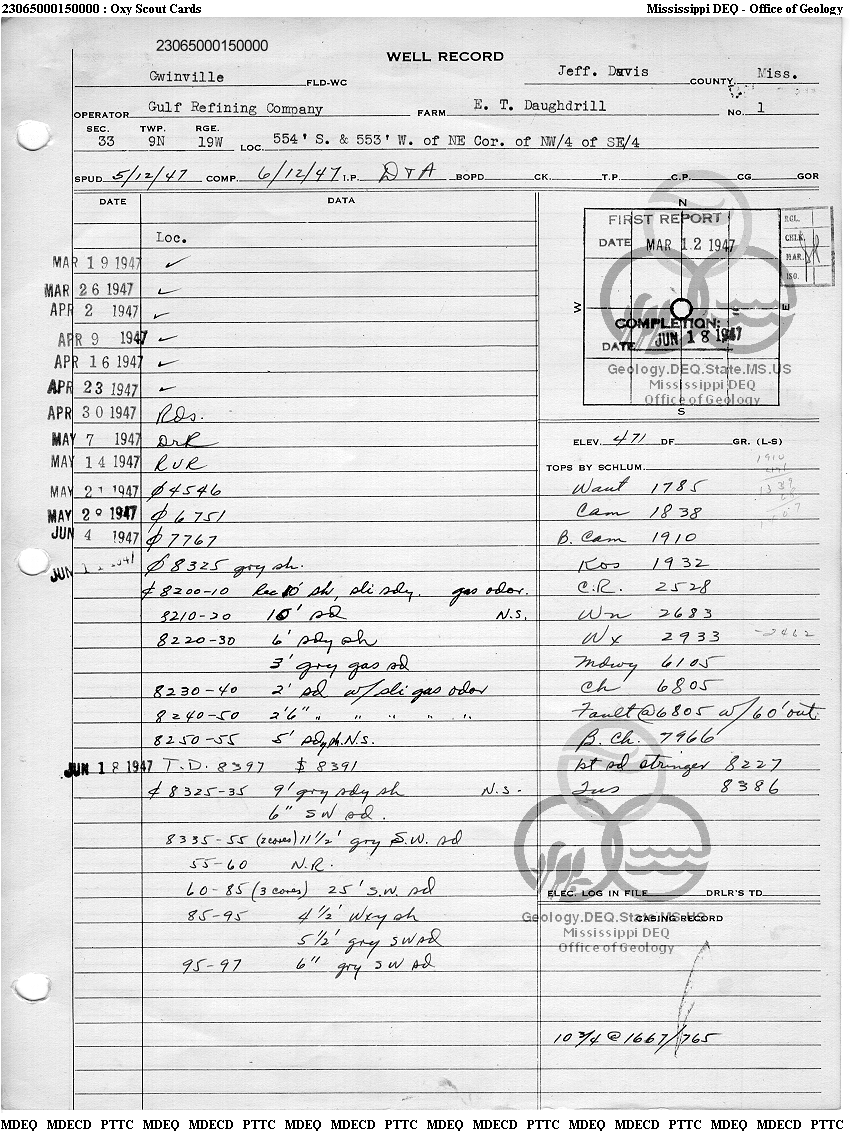 23065000150000 : Oxy Scout Cards Mississippi DEQ - Office of Geology
23065000150000
WELL RECORD
Gwinville FLD-WC Jeff. Davis COUNTY, Miss.
OPERATOR Gulf Refining Company FARM E. T. Daughdrill NO. 1
SEC. TWP. RGE.
33 9N 19W LOC. 554' S. & 553' W. of NE Cor. of NW/4 of SE/4
SPUD 5/12/47 COMP. 6/12/47 I.P. D & A BOPD CK. T.P. C.P. CG GOR
DATE DATA
Loc.
MAR 19 1947 ✓
MAR 26 1947 ✓
APR 2 1947 ✓
APR 9 1947 ✓
APR 16 1947 ✓
APR 23 1947 ✓
APR 30 1947 Rds.
MAY 7 1947 DrR
MAY 14 1947 RUR
MAY 21 1947 ∅ 4546
MAY 29 1947 ∅ 6751
JUN 4 1947 ∅ 7767
JUN 1947 ∅ 8325 gry sh.
₵ 8200-10 Rec 10' sh, sli sdy. gas odor.
8210-20 10' sd N.S.
8220-30 6' sdy sh
3' gry gas sd
8230-40 2' sd w/ sli gas odor
8240-50 2'6" " " " " "
8250-55 5' sdy sh. N.S.
JUN 18 1947 T.D. 8397 $ 8391
₵ 8325-35 9' gry sdy sh N.S.
6" SW sd.
8335-55 (2 cores) 11 1/2' gry S.W. sd
55-60 N.R.
60-85 (3 cores) 25' S.W. sd
85-95 4 1/2' Wxy sh
5 1/2' gry SW sd
95-97 6" gry SW sd
N
FIRST REPORT
DATE MAR 12 1947
RGL.
CHLK.
MAR.
ISO.
W E
COMPLETION:
DATE JUN 18 1947
Geology.DEQ.State.MS.US
Mississippi DEQ
Office of Geology
S
ELEV. 471 DF GR. (L-S)
TOPS BY SCHLUM.
1910
Waut 1785
Cam 1838
B. Cam 1910
Kos 1932
C.R. 2528
Wn 2683
Wx 2933 -2462
Mdwy 6105
Ch 6805
Fault @ 6805 w/ 60' out.
B. Ch. 7966
1st sd stringer 8227
Tus 8386
ELEC. LOG IN FILE DRLR'S TD
CASING RECORD
Geology.DEQ.State.MS.US
Mississippi DEQ
Office of Geology
10 3/4 @ 1667/765
MDEQ MDECD PTTC MDEQ MDECD PTTC MDEQ MDECD PTTC MDEQ MDECD PTTC MDEQ MDECD PTTC MDEQ MDECD PTTC